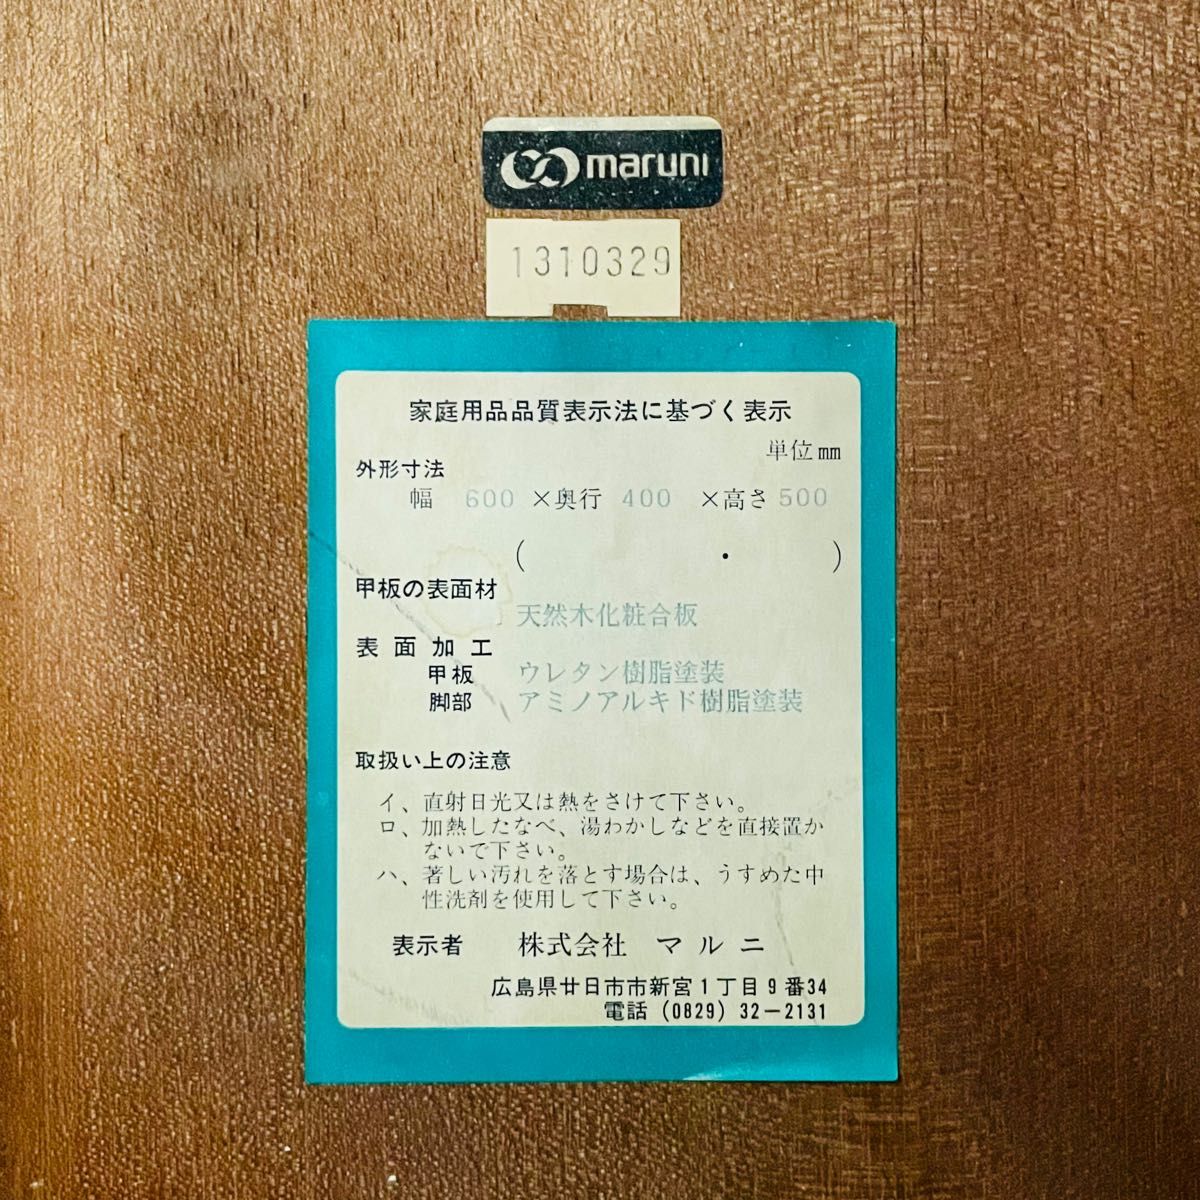 maruni
1310329
家庭用品品質表示法に基づく表示
単位mm
外形寸法
幅 600 ×奥行 400 ×高さ 500
( ・ )
甲板の表面材
天然木化粧合板
表面加工
甲板 ウレタン樹脂塗装
脚部 アミノアルキド樹脂塗装
取扱い上の注意
イ、直射日光又は熱をさけて下さい。
ロ、加熱したなべ、湯わかしなどを直接置か
ないで下さい。
ハ、著しい汚れを落とす場合は、うすめた中
性洗剤を使用して下さい。
表示者 株式会社 マルニ
広島県廿日市市新宮1丁目9番34
電話 (0829) 32-2131